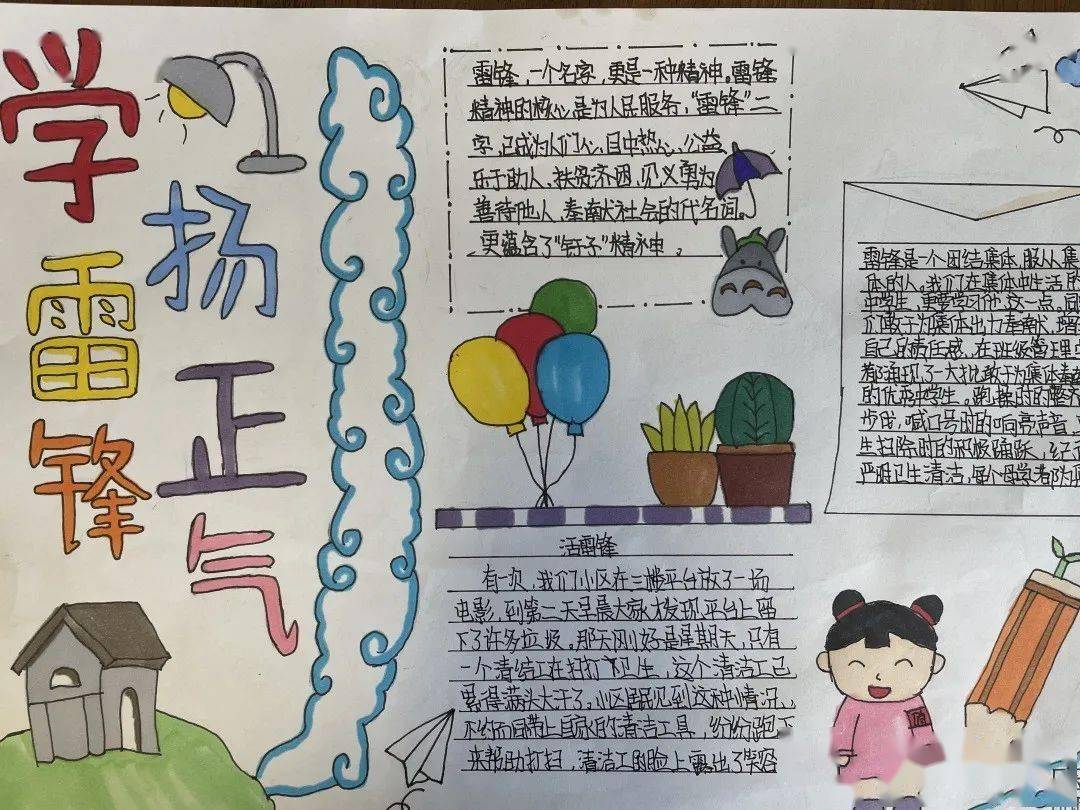 学雷锋
扬正气
雷锋,一个名字,更是一种精神。雷锋
精神的核心是为人民服务,"雷锋"二
字,已成为人们心目中热心公益、
乐于助人、扶贫济困、见义勇为
善待他人、奉献社会的代名词。
更蕴含了"钉子"精神。
雷锋是一个团结集体,服从集
体的人。我们在集体中生活的
中学生,重要学习他这一点,同
们敢于为集体出力奉献,增
自己的责任感,在班级管理
都涌现了一大批敢于为集体奉
的优秀中学生。跑操时的整齐
步伐,喊口号时的响亮声音,
生扫除时的积极踊跃,纪
严明卫生清洁,每个同学都为
活雷锋
有一次,我们小区在三楼平台放了一场
电影,到第二天早晨大家才发现平台上留
下了许多垃圾。那天刚好是星期天,只有
一个清结工在扫打卫生,这个清洁工已
累得满头大汗了,小区居民见到这种情况,
不约而同带上自家的清洁工具,纷纷跑下
来帮助打扫,清洁工的脸上露出了笑容